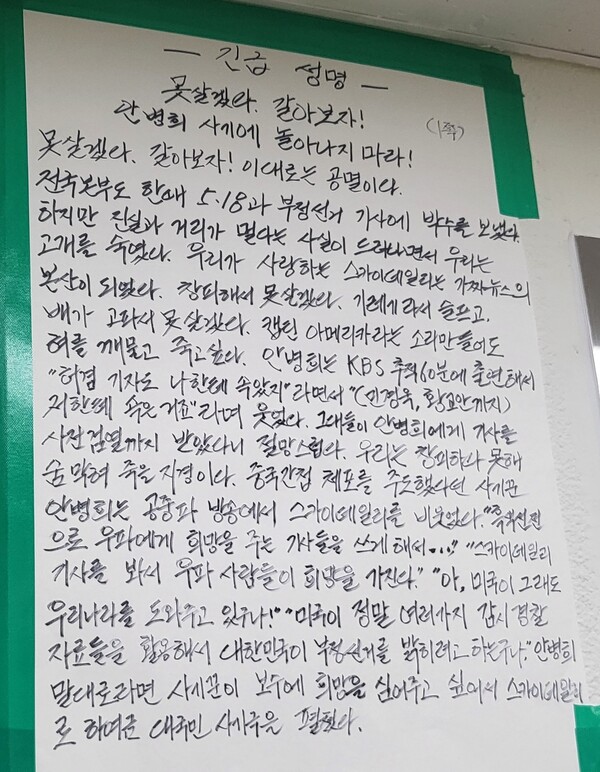 — 긴급 성명 —
못살겠다. 갈아보자!
안병희 사기에 놀아나지 마라!
(1쪽)
못살겠다. 갈아보자! 이대로는 공멸이다.
전국본부도 한때 5.18과 부정선거 기사에 박수를 보냈다.
하지만 진실과 거리가 멀다는 사실이 드러나면서 우리는
고개를 숙였다. 우리가 사랑하는 스카이데일리는 가짜뉴스의
본산이 되었다. 창피해서 못살겠다. 기레기라서 슬프고,
배가 고파서 못살겠다. 캡틴 아메리카라는 소리만 들어도
혀를 깨물고 죽고싶다. 안병희는 KBS 추적60분에 출연해서
"허겸 기자도 나한테 속았지"라면서 "(민경욱, 황교안까지)
저한테 속은 거죠"라며 웃었다. 그대들이 안병희에게 기사를
사전검열까지 받았다니 절망스럽다. 우리는 창피하다 못해
숨막혀 죽을 지경이다. 중국간첩 체포를 주도했다던 사기꾼
안병희는 공중파 방송에서 스카이데일리를 비웃었다. "흑색선전
으로 우파에게 희망을 주는 기사들을 쓰게 해서...." "스카이데일리
기사를 봐서 우파 사람들이 희망을 가진다." "아, 미국이 그래도
우리나라를 도와주고 있구나!" "미국이 정말 여러가지 감시 경찰
자료들을 활용해서 대한민국이 부정선거를 밝히려고 하는구나." 안병희
말대로라면 사기꾼이 보수에 희망을 심어주고 싶어서 스카이데일리
로 하여금 대국민 사기극을 펼쳤다.